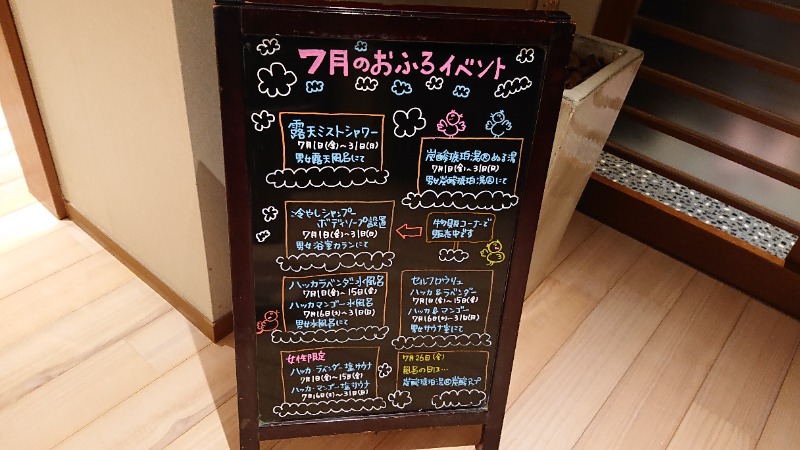 7月のおふろイベント
露天ミストシャワー
7月1日(金)~31日(日)
男女露天風呂にて
炭酸琥珀湯®ぬる湯
7月1日(金)~31日(日)
男女炭酸琥珀湯®にて
冷やしシャンプー
ボディソープ設置
7月1日(金)~31日(日)
男女浴室カランにて
物販コーナーで
販売中です
ハッカラベンダー水風呂
7月1日(金)~15日(金)
ハッカマンゴー水風呂
7月16日(土)~31日(日)
男女水風呂にて
セルフロウリュ
ハッカ&ラベンダー
7月1日(金)~15日(金)
ハッカ&マンゴー
7月16日(土)~31日(日)
男女サウナ室にて
女性限定
ハッカ・ラベンダー塩サウナ
7月1日(金)~15日(金)
ハッカ・マンゴー塩サウナ
7月16日(土)~31日(日)
7月26日(金)
風呂の日は…
炭酸琥珀湯®炭酸UP